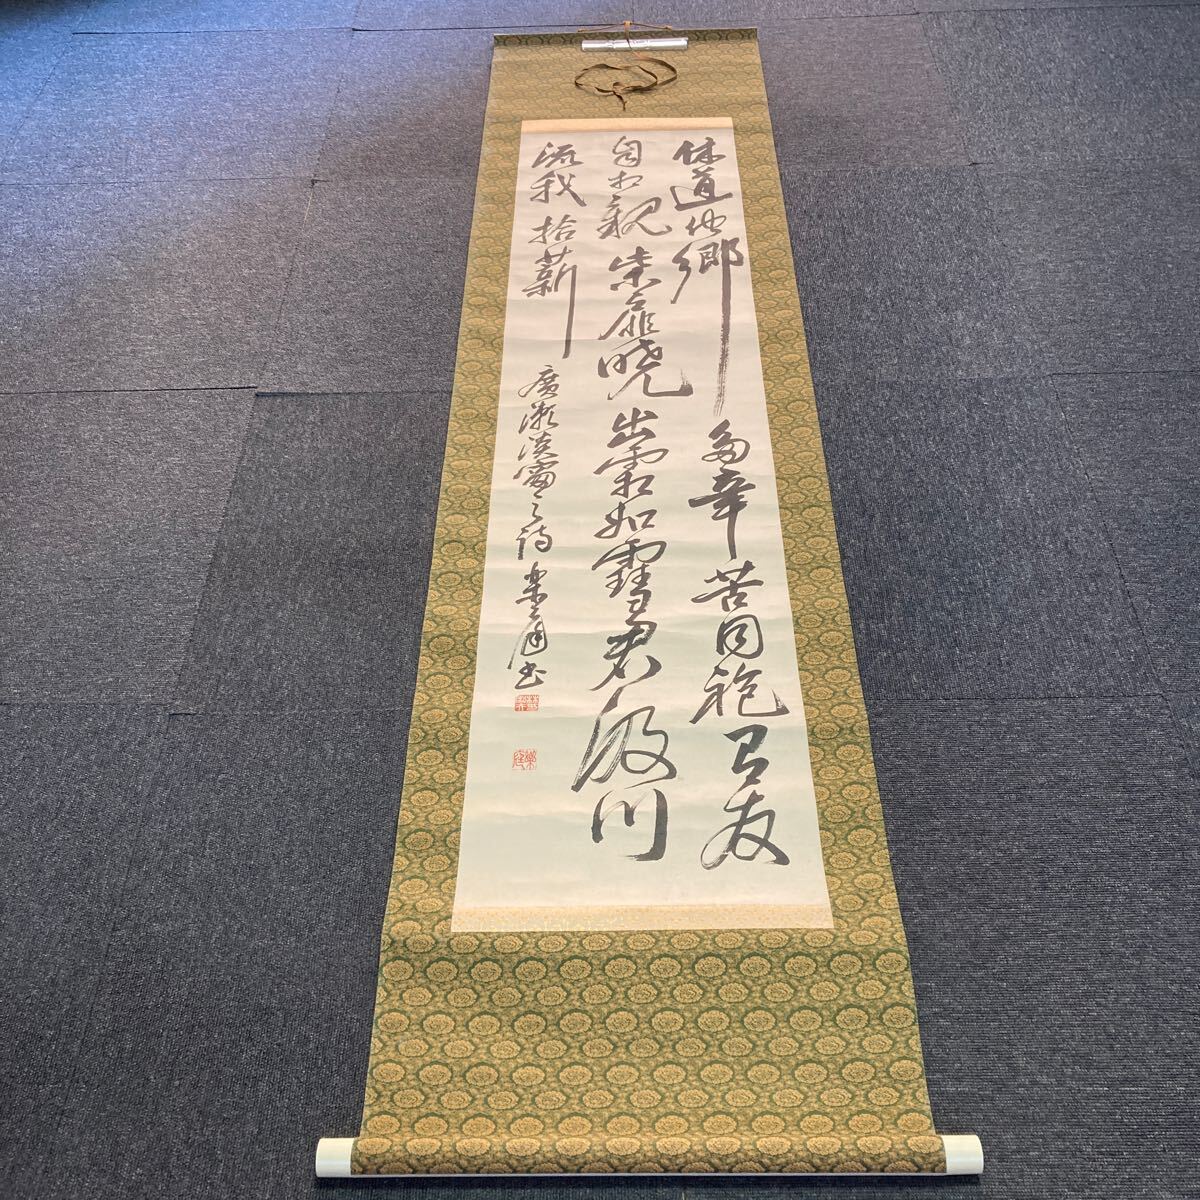 休道他郷多辛苦同袍有友
自相親柴扉暁出霜如雪君汲川
流我拾薪 廣瀬淡窗之詩 書